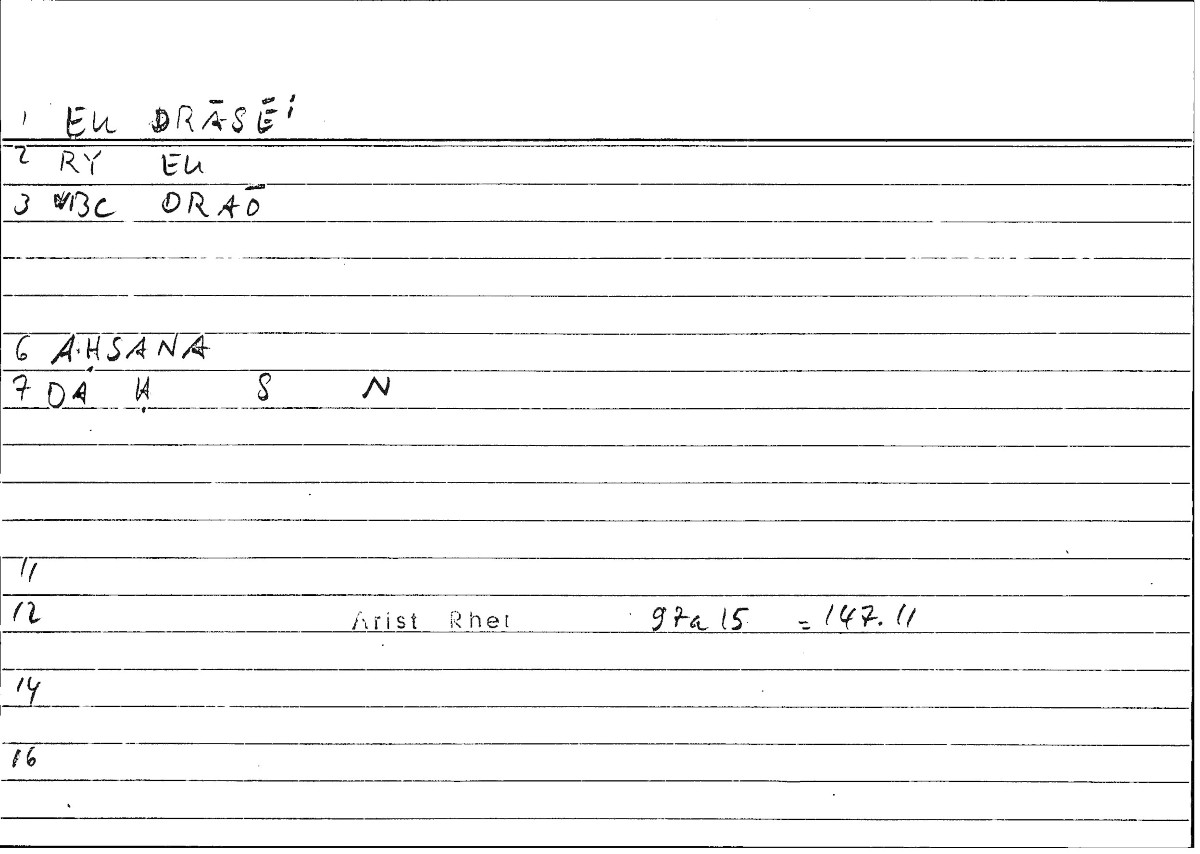 1 EU DRĀSĒI
2 RY EU
3 VBC DRAŌ
6 AḤSANA
7 DA Ḥ S N
11
12 Arist Rhet 97a 15 = 147.11
14
16